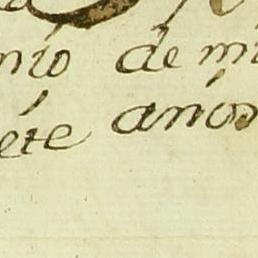 nio de mi
éte años